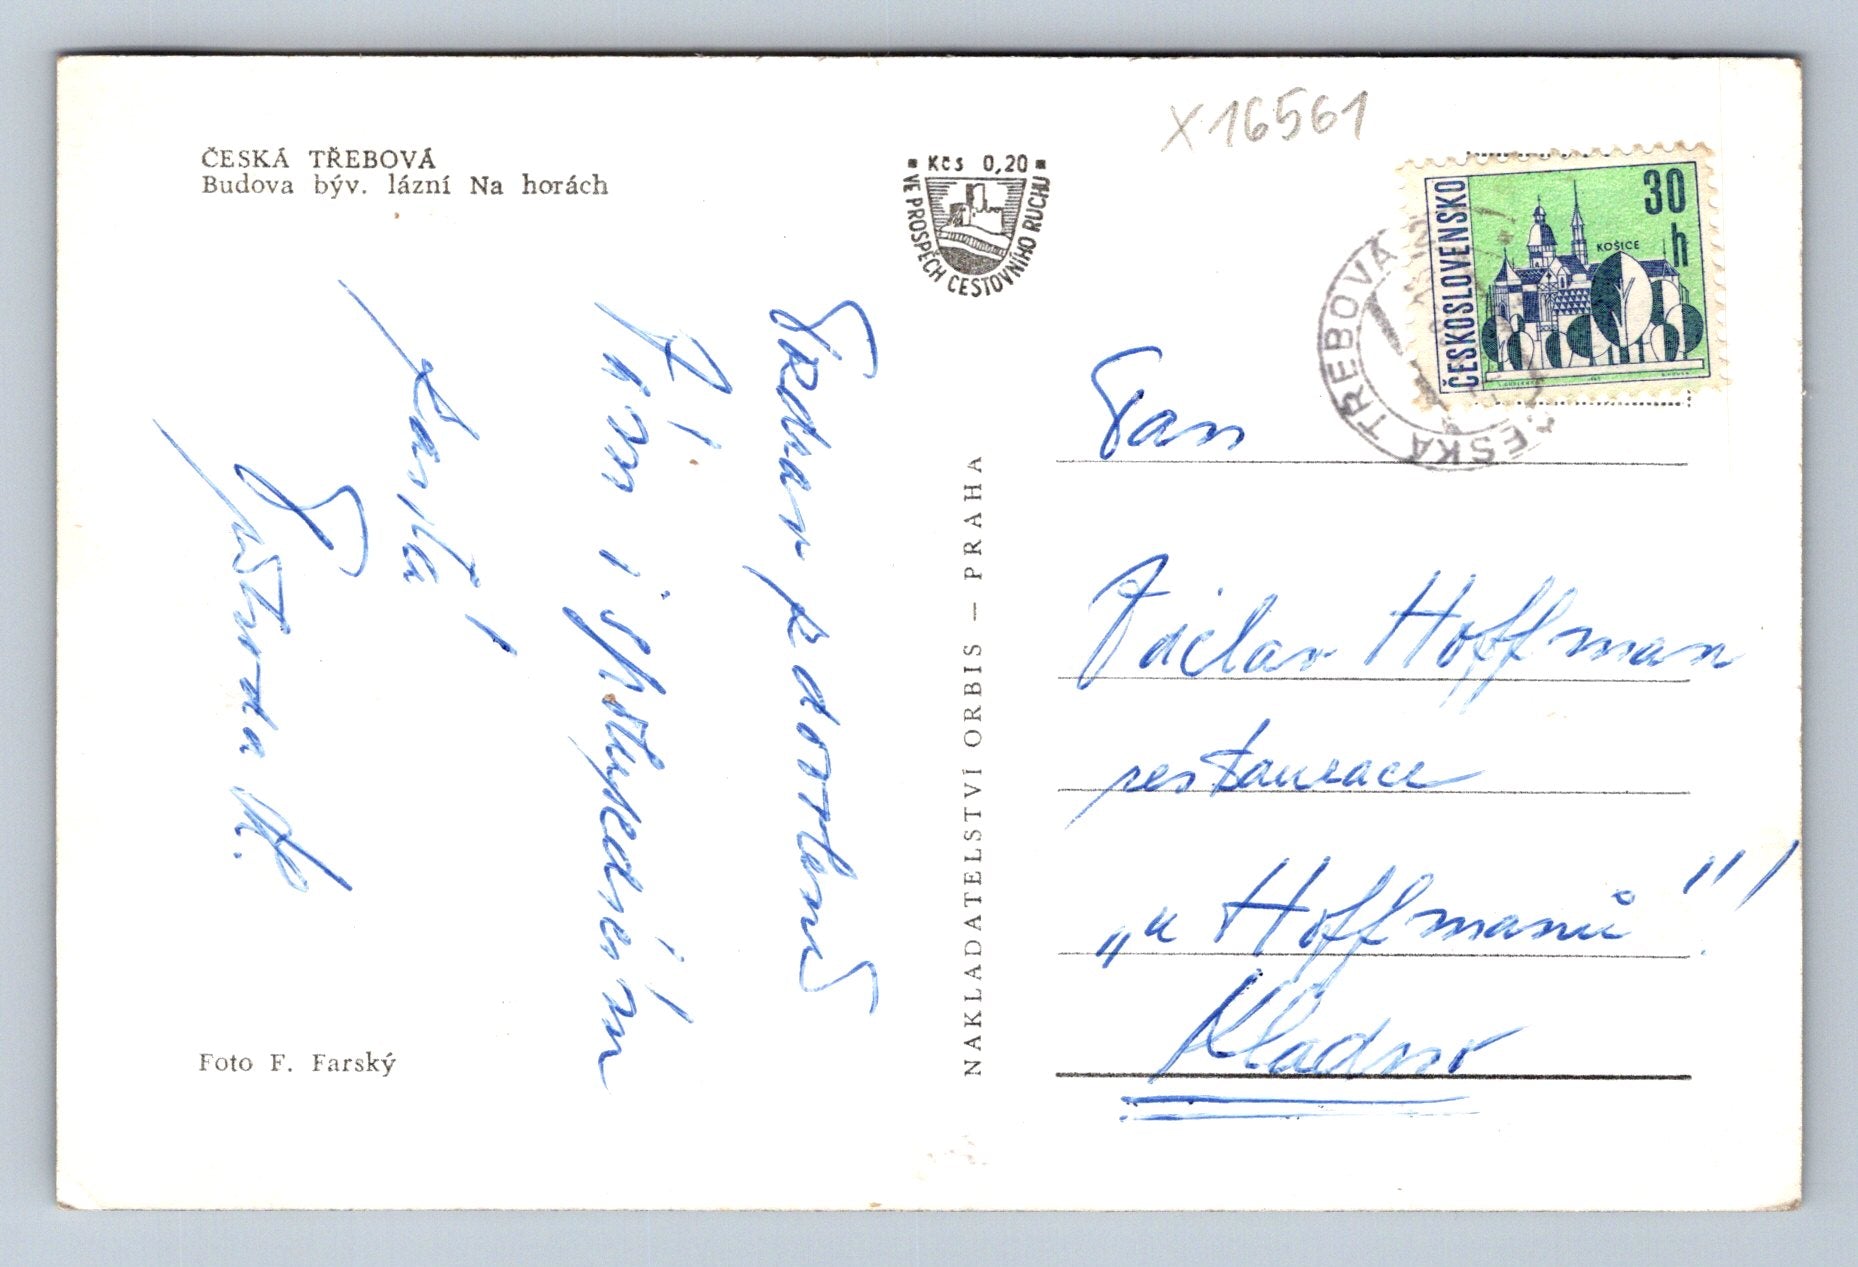 ČESKÁ TŘEBOVÁ
Budova býv. lázní Na horách
Kčs 0,20
VE PROSPĚCH CESTOVNÍHO RUCHU
X16561
ČESKOSLOVENSKO
30 h
KOŠICE
ČESKÁ TŘEBOVÁ
Pan
Václav Hoffman
restaurace
„u Hoffmanů"!
Kladno
NAKLADATELSTVÍ ORBIS – PRAHA
Srdečn pozdravení
Vám i
Foto F. Farský